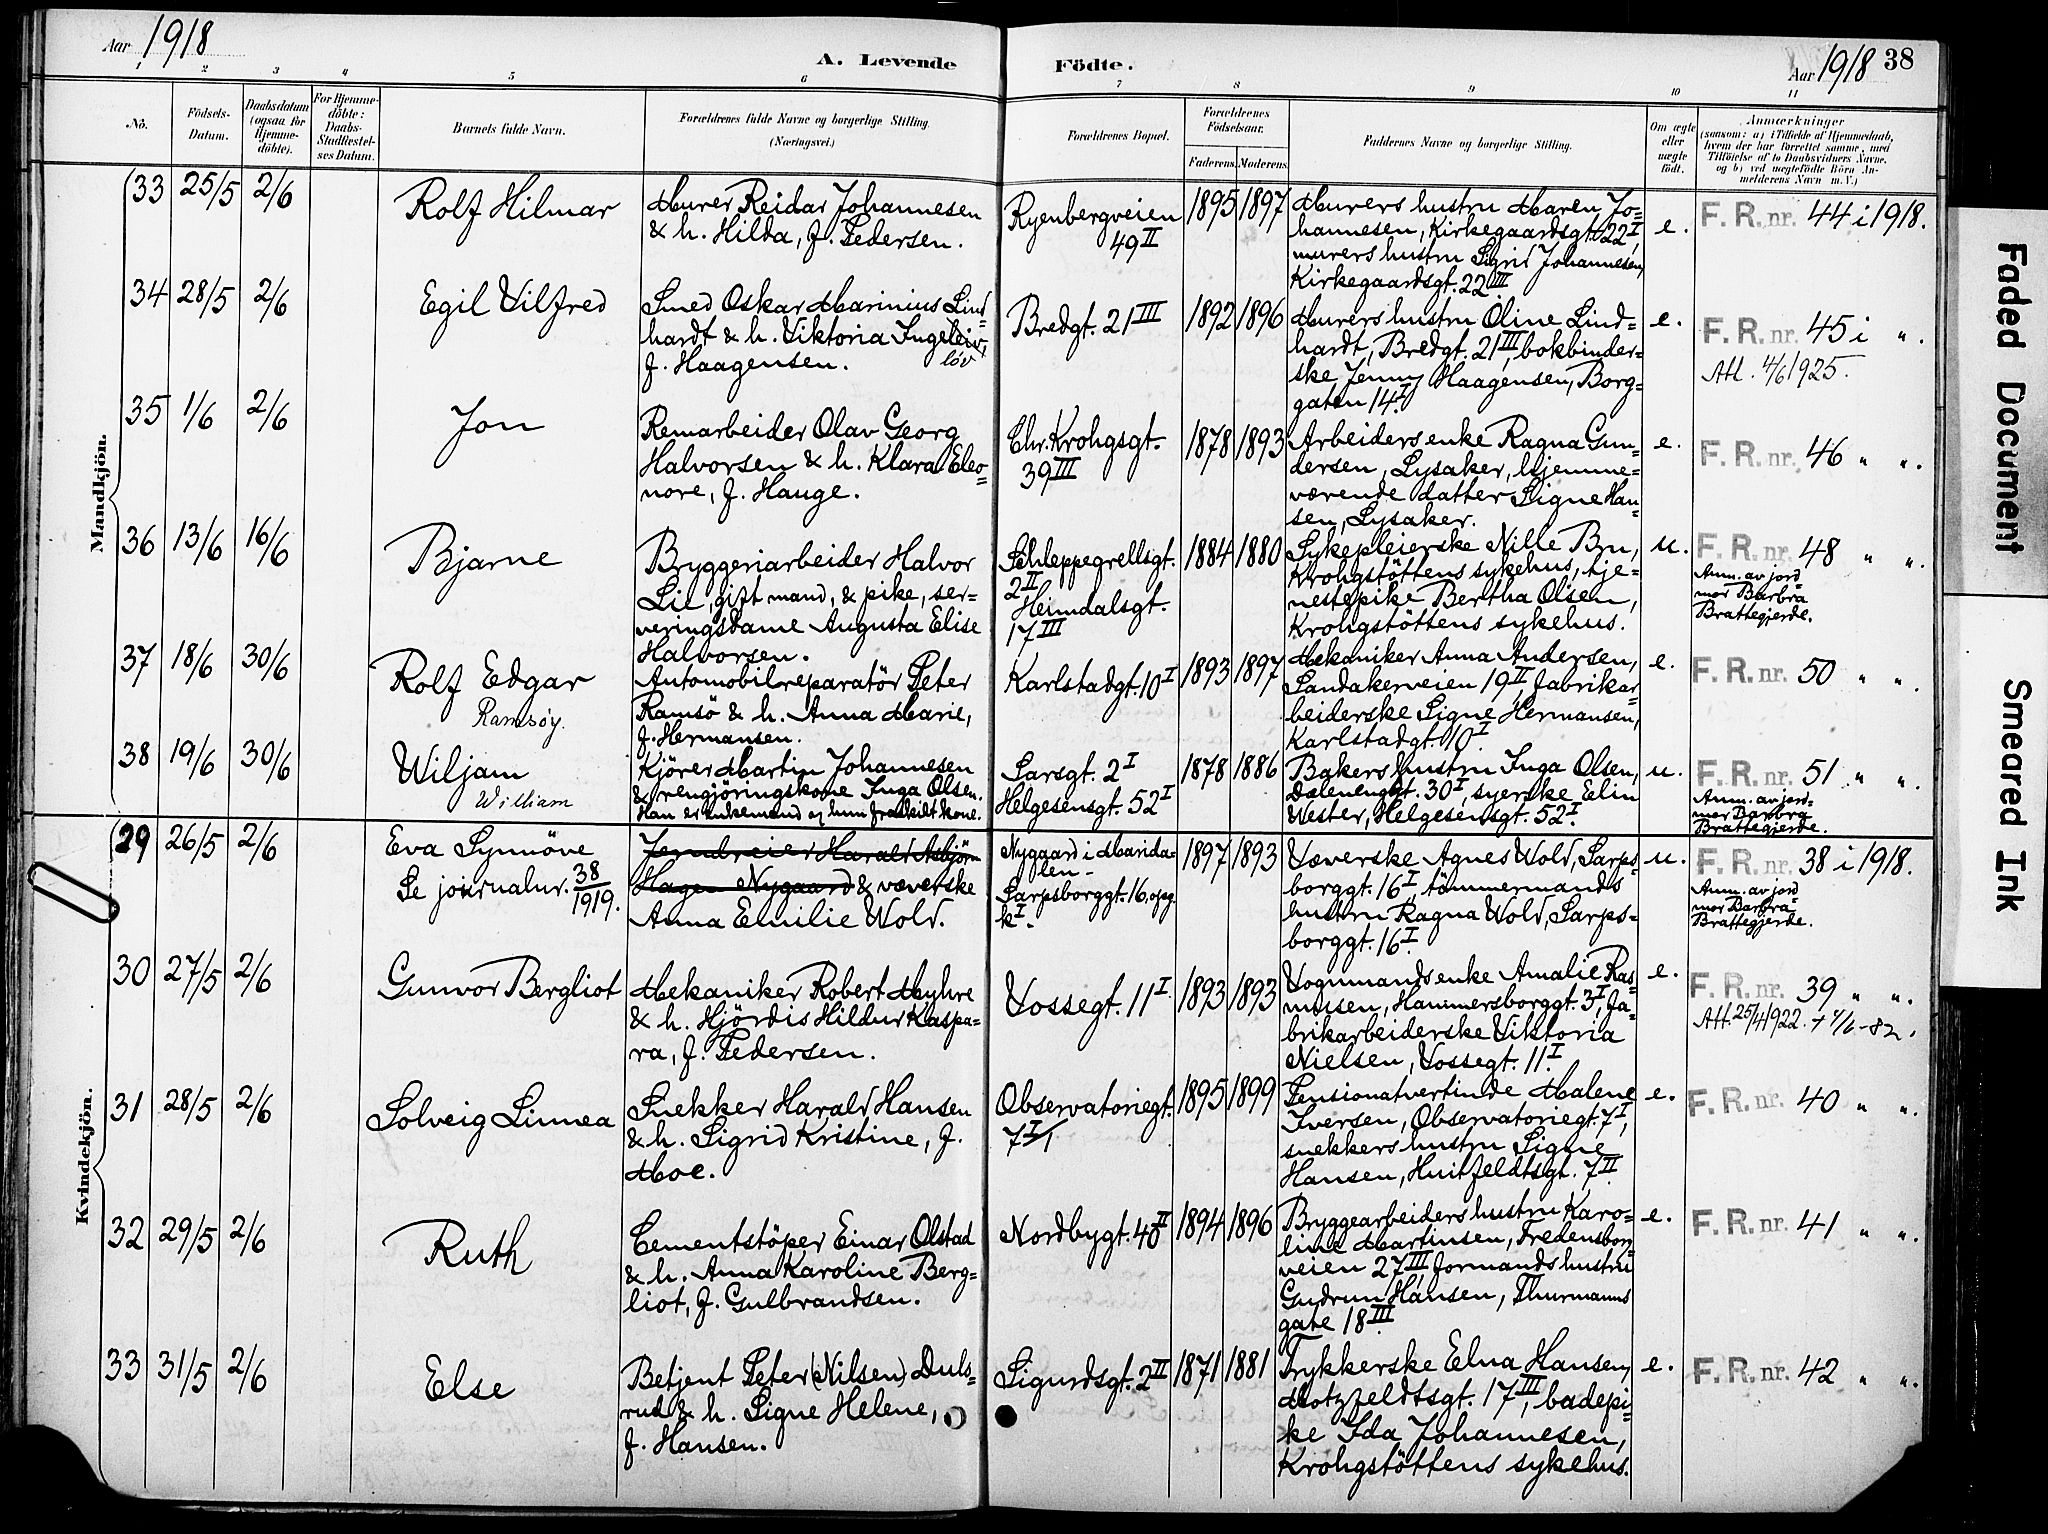 Aar 1918
A. Levende
Födte.
Aar 1918 38
1 2 3 4 5 6 7 8 9 10 11
No.
Födsels-
Datum.
Daabsdatum
(ogsaa for
Hjemme-
döbte).
For Hjemme-
döbte:
Daabs-
Stadfæstel-
ses Datum.
Barnets fulde Navn.
Forældrenes fulde Navne og borgerlige Stilling
(Næringsvei.)
Forældrenes Bopæl.
Forældrenes
Födselsaar.
Faderens. Moderens.
Faddernes Navne og borgerlige Stilling.
Om ægte
eller
uægte
födt.
Anmærkninger
(saasom: a) i Tilfælde af Hjemmedaab,
hvem der har forrettet samme, med
Tilföielse af to Daabsvidners Navne,
og b) ved uægtefödte Börn An-
melderens Navn m. V.)
Mandkjön.
33 25/5 2/6
Rolf Hilmar
Murer Reidar Johannesen
& h. Hilda, f. Pedersen.
Ryenbergveien
49 II
1895 1897
Murers hustru Maren Jo=
hannesen, Kirkegaardsgt. 22 I,
murers hustru Sigrid Johannesen,
Kirkegaardsgt. 22 III.
e.
F. R. nr. 44 i 1918.
34 28/5 2/6
Egil Vilfred
Smed Oskar Marinius Lind=
hardt & h. Viktoria Ingeleiv,
löv
f. Haagensen.
Bredgt. 21 III
1892 1896
Murers hustru Oline Lind=
hardt, Bredgt. 21 III, bokbinder=
ske Jenny Haagensen, Borg=
gaten 14 I.
e.
F. R. nr. 45 i ".
Att. 4/6 1925.
35 1/6 2/6
Jon
Remarbeider Olav Georg
Halvorsen & h. Klara Eleo=
nore, f. Hauge.
Chr. Krohgsgt.
39 III
1878 1893
Arbeiders enke Ragna Gun=
dersen, Lysaker, hjemme=
værende datter Signe Han=
sen, Lysaker.
e.
F. R. nr. 46 " ".
36 13/6 16/6
Bjarne
Bryggeriarbeider Halvor
Lie, gift mand, & pike, ser=
veringsdame Augusta Elise
Halvorsen.
Schleppegrellsgt.
2 II
Heimdalsgt.
17 III
1884 1880
Sykepleierske Nille Bru,
Krohgstöttens sykehus, tje=
nestepike Bertha Olsen,
Krohgstöttens sykehus.
u.
F. R. nr. 48 " ".
Anm. av jord
mor Barbra
Brattegjerde.
37 18/6 30/6
Rolf Edgar
Ramsöy.
Automobilreparatör Peter
Ramsö & h. Anna Marie,
f. Hermansen.
Karlstadgt. 10 I
1893 1897
Mekaniker Anna Andersen,
Sandakerveien 19 II, fabrikar=
beiderske Signe Hermansen,
Karlstadgt. 10 I.
e.
F. R. nr. 50 " ".
38 19/6 30/6
Wiljam
William
Kjörer Martin Johannesen
& rengjöringskone Inga Olsen.
Han er enkemand og hun fraskilt kone.
Sarsgt. 2 I
Helgesensgt. 52 I
1878 1886
Bakers hustru Inga Olsen,
Dælenenggt. 30 I, syerske Elin
Wester, Helgesensgt. 52 I.
u.
F. R. nr. 51 " ".
Anm. av jord=
mor Barbra
Brattegjerde.
Kvindekjön.
29 26/5 2/6
Eva Synnöve
Se journalnr. 38/1919.
Jerndreier Harald Asbjörn
Hagen Nygaard & væverske
Anna Emilie Wold.
Nygaard i Marida=
len -
Sarpsborggt. 16, opg.
k I.
1897 1893
Væverske Agnes Wold, Sarps=
borggt. 16 I, tömmermands
hustru Ragna Wold, Sarps=
borggt. 16 I
u.
F. R. nr. 38 i 1918.
Anm. av jord
mor Barbra
Brattegjerde.
30 27/5 2/6
Gunvor Bergliot
Mekaniker Robert Myhre
& h. Hjördis Hildur Kaspa=
ra, f. Pedersen.
Vossegt. 11 I
1893 1893
Vognmands enke Amalie Ras=
mussen, Hammersborggt. 3 I, fa=
brikarbeiderske Viktoria
Nielsen, Vossegt. 11 I.
e.
F. R. nr. 39 " ".
Att. 25/4 1922. + 4/6 - 82.
31 28/5 2/6
Solveig Linnea
Snekker Harald Hansen
& h. Sigrid Kristine, f.
Moe.
Observatoriegt.
7 I/1
1895 1899
Pensionatvertinde Malene
Iversen, Observatoriegt. 7 I,
snekkers hustru Signe
Hansen, Huitfeldtsgt. 7 II.
e.
F. R. nr. 40 " ".
32 29/5 2/6
Ruth
Cementstöper Einar Olstad
& h. Anna Karoline Berg=
liot, f. Gulbrandsen.
Nordbygt. 40 II
1894 1896
Bryggearbeiders hustru Karo=
line Martinsen, Fredensborg
veien 27 III, formands hustru
Gudrun Hansen, Thurmanns
gate 18 III.
e.
F. R. nr. 41 " ".
33 31/5 2/6
Else
Betjent Peter (Nilsen) Duls=
rud & h. Signe Helene,
f. Hansen.
Sigurdsgt. 2 II
1871 1881
Trykkerske Elna Hansen,
Motzfeldtsgt. 17 III, badepi=
ke Ida Johannesen,
Krohgstöttens sykehus.
e.
F. R. nr. 42 " ".
Faded Document
Smeared Ink